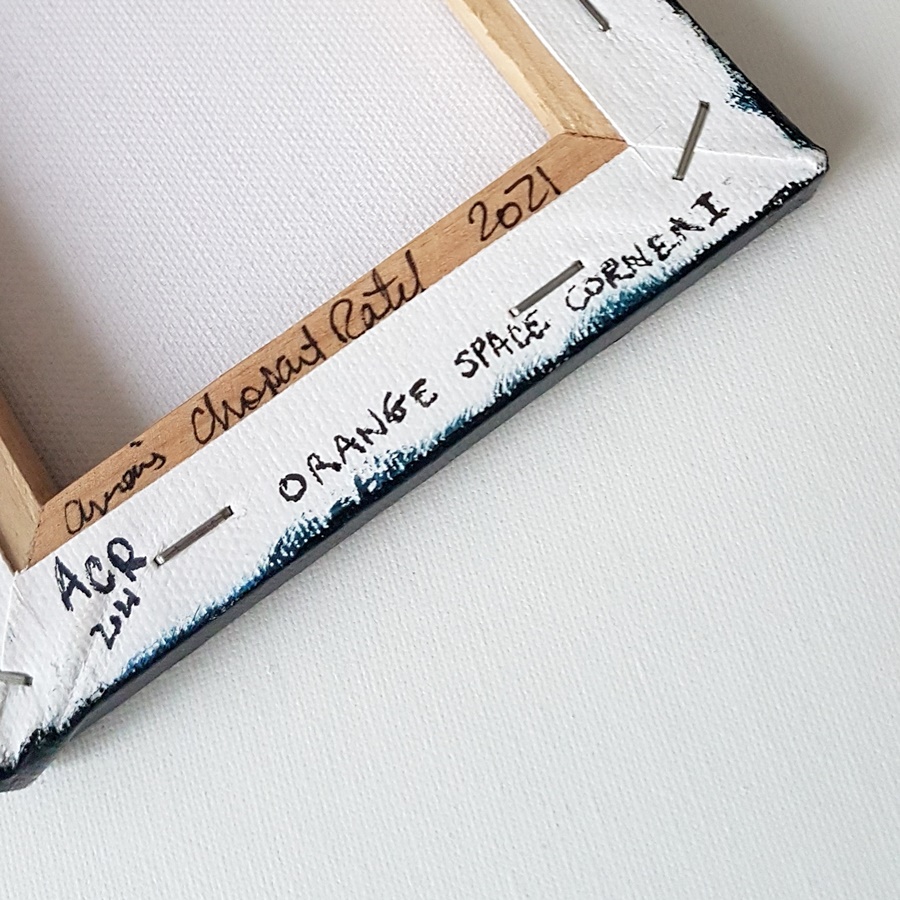 Anaïs Chosait Ratel 2021
ORANGE SPACE CORNER I
ACR
2021